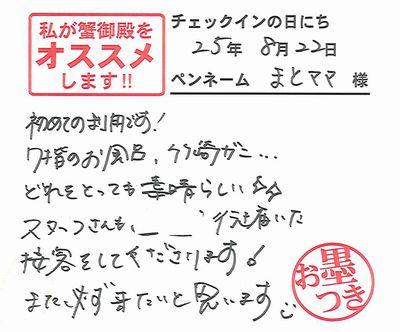 私が蟹御殿を
オススメ
します!!
チェックインの日にち
25年 8月22日
ペンネーム まとママ 様
初めてのお利用です!
7階のお風呂、竹崎ガニ…
どれをとっても素晴らしい☆☆
スタッフさんも、_ _ 行き届いた
接客をしてくださります!
また必ず来たいと思います
お墨つき